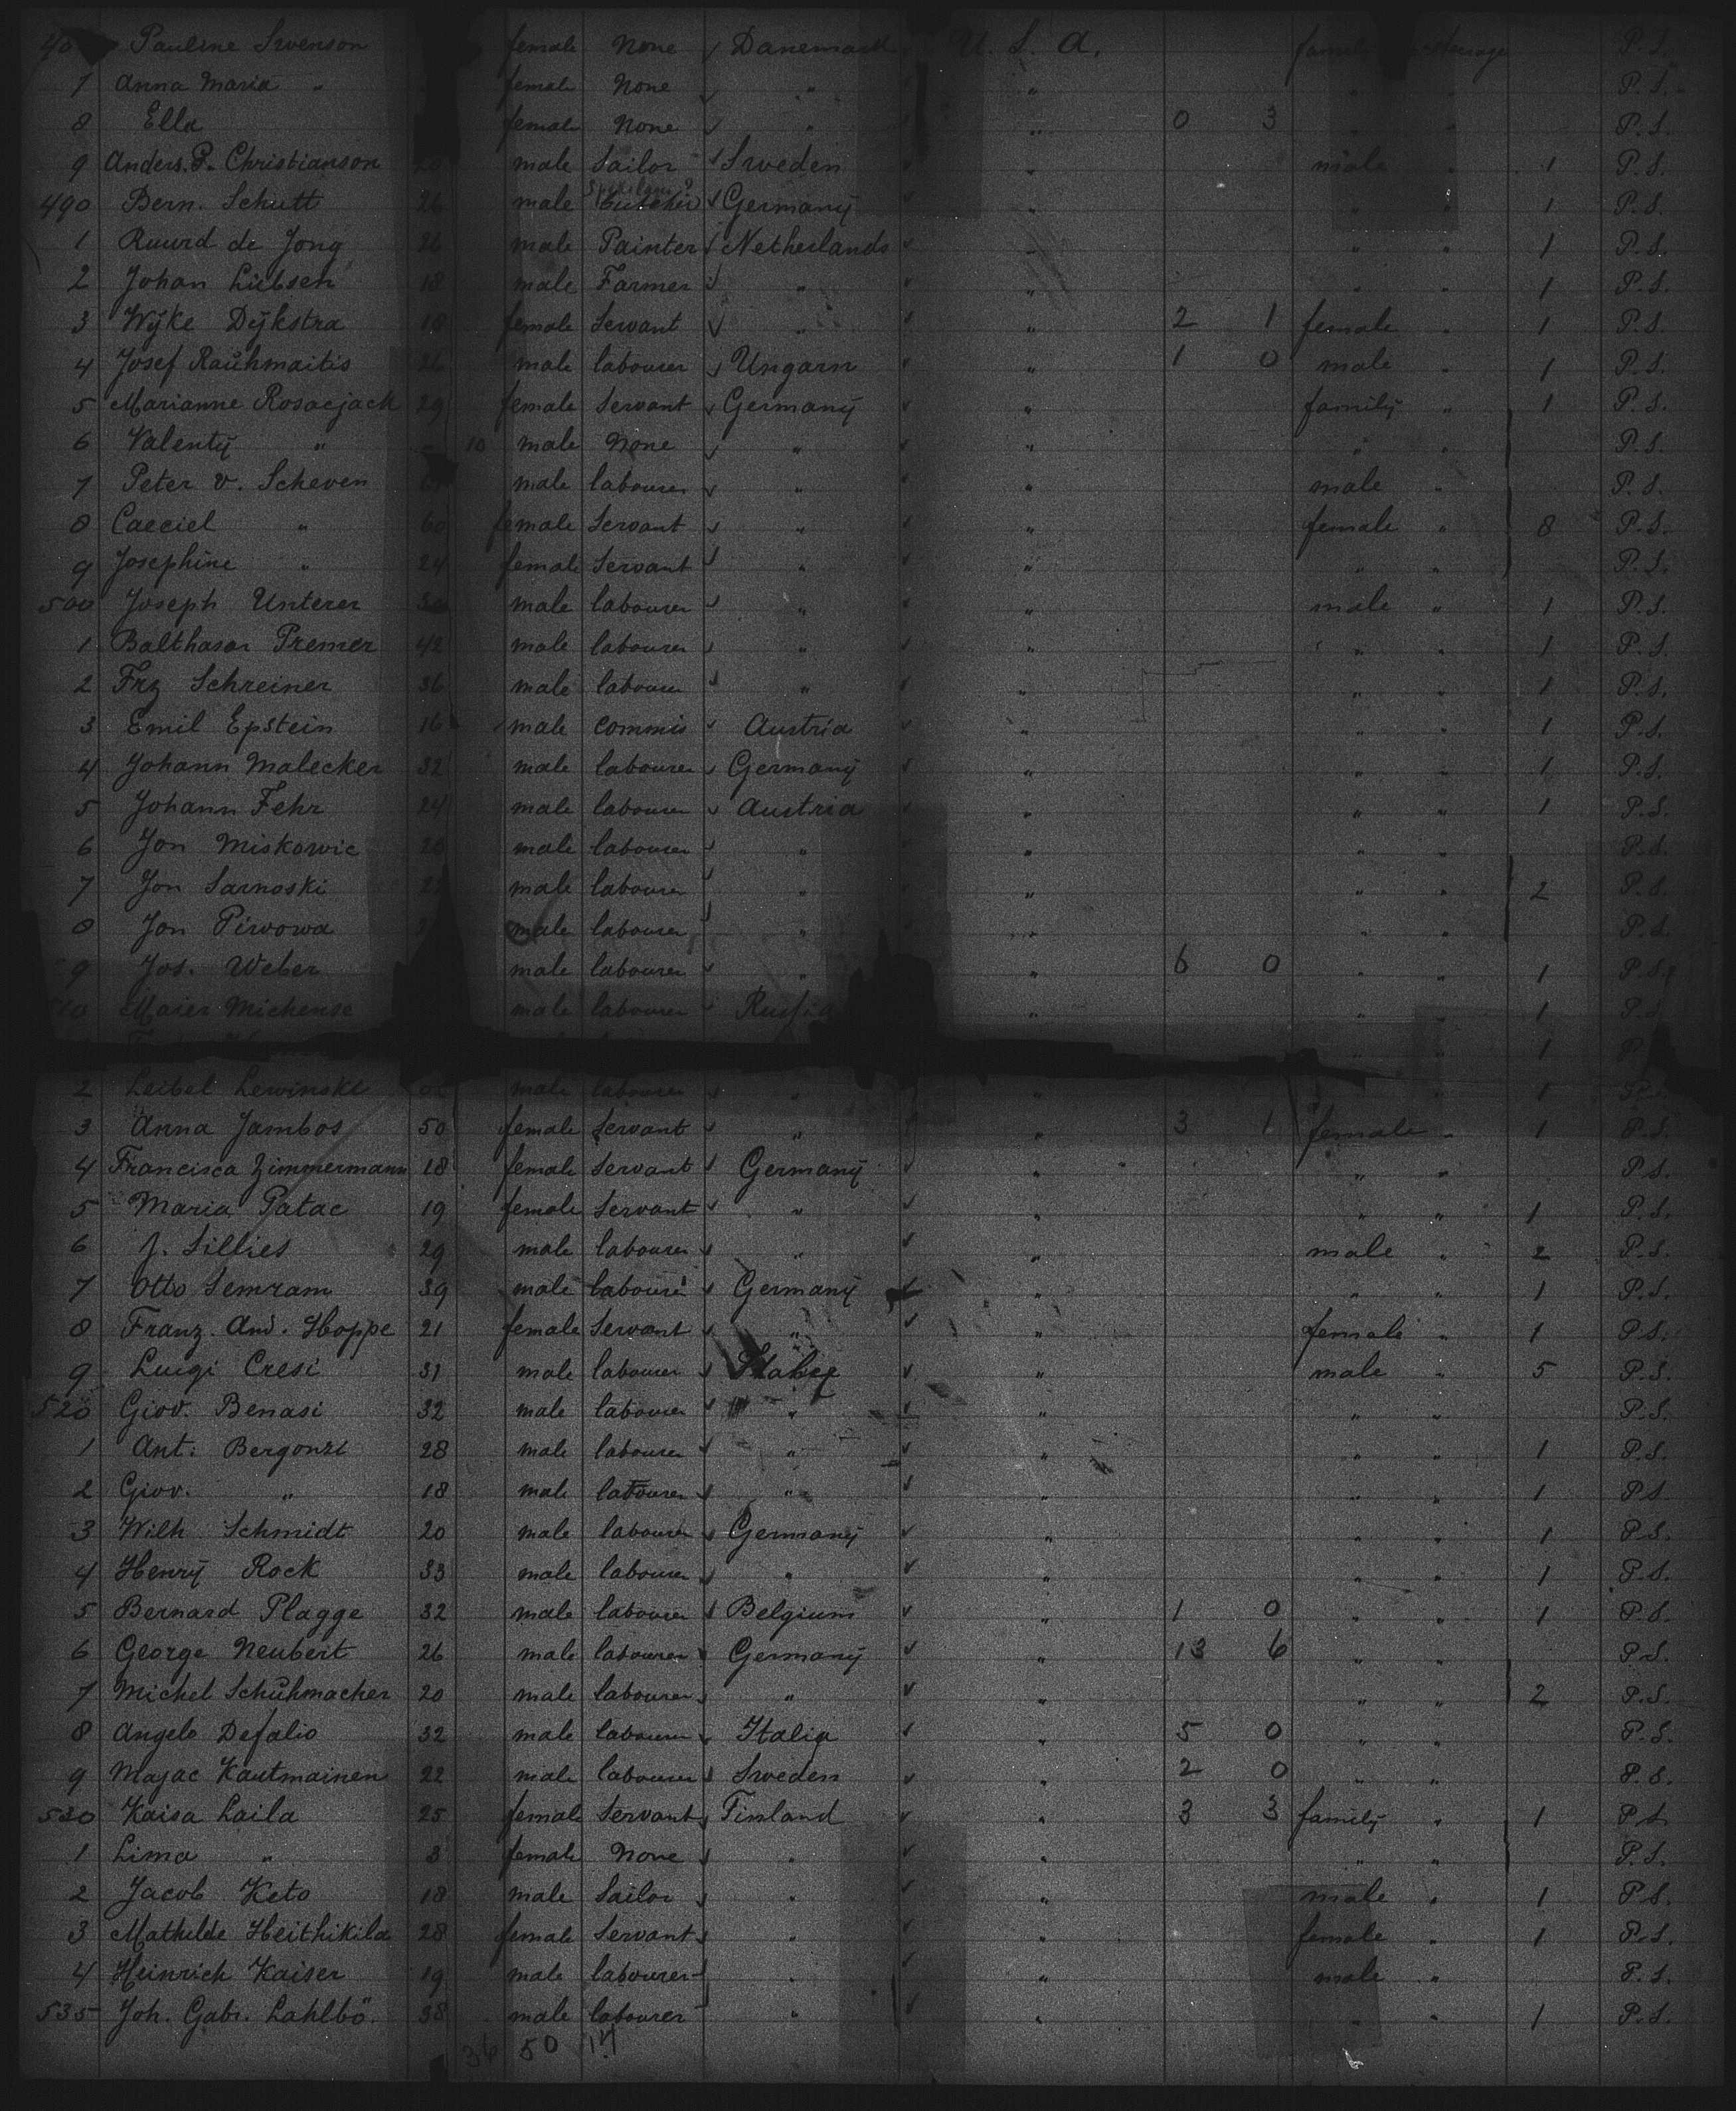 Pauline Swenson female None Danemark U. S. A. P. S.
7 Anna Maria " female None " " P. S.
8 Ella female None " " 0 3 P. S.
9 Anders. P. Christianson male Sailor Sweden " male " 1 P. S.
490 Bern. Schutt 26 male Butcher Germany " " 1 P. S.
1 Ruurd de Jong 26 male Painter Netherlands " " " 1 P. S.
2 Johan Liebsen 18 male Farmer " " " " 1 P. S.
3 Wijke Dijkstra 18 female Servant " " 2 1 female " 1 P. S.
4 Josef Rauhmaitis 26 male labourer Ungarn " 1 0 male " 1 P. S.
5 Marianne Rosacjack 29 female Servant Germany " family " 1 P. S.
6 Valenty " - 10 male None " " " " P. S.
7 Peter v. Scheven male labourer " " male " P. S.
8 Caeciel " 60 female Servant " " female " 8 P. S.
9 Josephine " 24 female Servant " " " " P. S.
500 Joseph Unterer 30 male labourer " " male " 1 P. S.
1 Balthasar Premer 42 male labourer " " " " 1 P. S.
2 Frz Schreiner 36 male labourer " " " " 1 P. S.
3 Emil Epstein 16 male commis Austria " " " 1 P. S.
4 Johann Malecker 32 male labourer Germany " " " 1 P. S.
5 Johann Fehr 24 male labourer Austria " " " 1 P. S.
6 Jon Miskowic 20 male labourer " " " " P. S.
7 Jon Sarnoski male labourer " " " " 2 P. S.
8 Jon Pirvowa male labourer " " " " P. S.
9 Jos. Weber male labourer " " 6 0 " " 1 P. S.
Maier Mickense male labourer Russia " " " 1 P. S.
" " 1 P.
2 Leibel Lewinski male labourer " " " 1
3 Anna Jambos 50 female Servant " " 3 1 female " 1 P. S.
4 Francisca Zimmermann 18 female Servant Germany " " " P. S.
5 Maria Patac 19 female Servant " " " " 1 P. S.
6 J. Sillies 29 male labourer " " male " 2 P. S.
7 Otto Semram 39 male labourer Germany " " " 1 P. S.
8 Franz. And. Hoppe 21 female Servant " " female " 1 P. S.
9 Luigi Cresi 31 male labourer Italy " male " 5 P. S.
520 Giov. Benasi 32 male labourer " " " " P. S.
1 Ant: Bergonzi 28 male labourer " " " " 1 P. S.
2 Giov. " 18 male labourer " " " " 1 P. S.
3 Wilh Schmidt 20 male labourer Germany " " " 1 P. S.
4 Henry Rock 33 male labourer " " " " 1 P. S.
5 Bernard Plagge 32 male labourer Belgium " 1 0 " " 1 P. S.
6 George Neubert 26 male labourer Germany " 13 6 " " P. S.
7 Michel Schuhmacher 20 male labourer " " " " 2 P. S.
8 Angelo Defalio 32 male labourer Italia " 5 0 " " P. S.
9 Majac Kautmainen 22 male labourer Sweden " 2 0 " " P. S.
530 Kaisa Laila 25 female Servant Finland " 3 3 family " 1 P. S.
1 Lima " 3 female None " " " " P. S.
2 Jacob Keto 18 male Sailor " " male " 1 P. S.
3 Mathilde Heithikila 28 female Servant " " female " 1 P. S.
4 Heinrich Kaiser 19 male labourer " " male " P. S.
535 Joh. Gabr. Lahlbö. 38 male labourer " " " " 1 P. S.
36 50 17